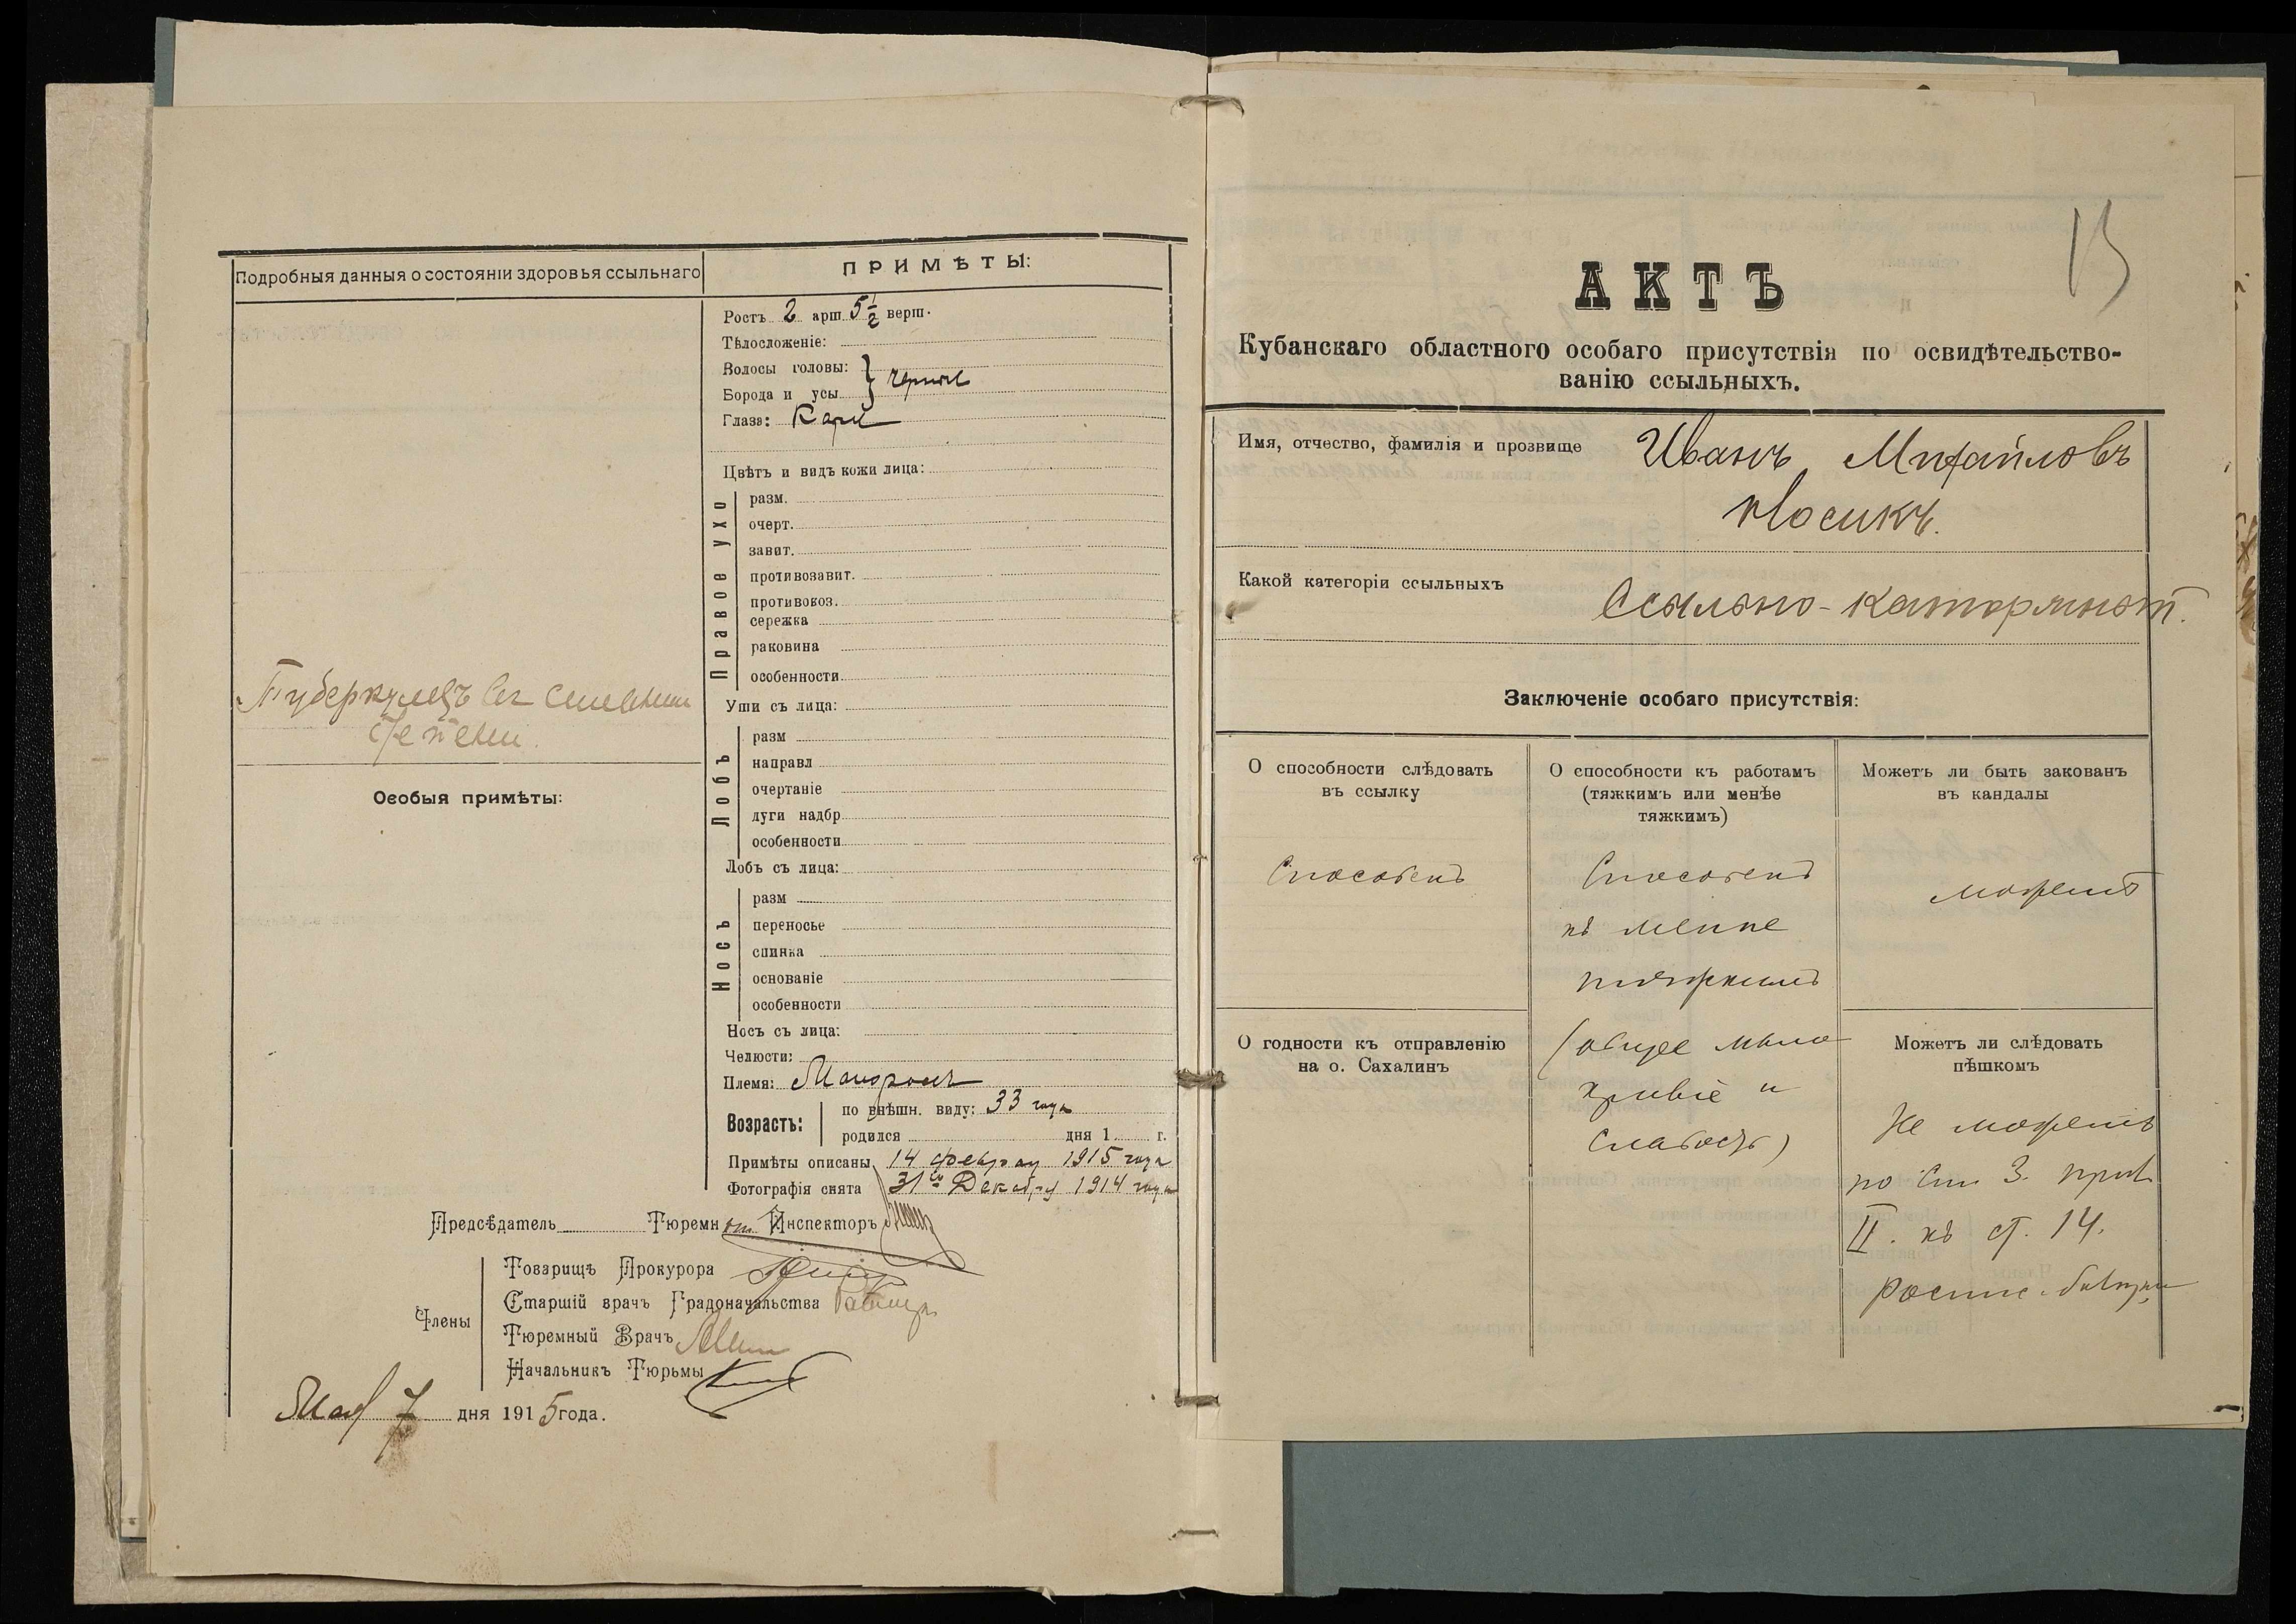 Подробныя данныя о состояніи здоровья ссыльнаго
Туберкулезъ въ сильной
степени.
Особыя примѣты:
ПРИМѢТЫ:
Ростъ 2 арш 5 1/2 верш.
Тѣлосложеніе:
Волосы головы:
Борода и усы } черные
Глаза: Каріе
Цвѣтъ и видъ кожи лица:
Правое ухо
разм.
очерт.
завит.
противозавит.
противокоз.
сережка
раковина
особенности
Уши съ лица:
Лобъ
разм
направл
очертаніе
дуги надбр
особенности
Лобъ съ лица:
Носъ
разм
переносье
спинка
основаніе
особенности
Носъ съ лица:
Челюсти:
Племя:
Возрастъ:
по внѣшн. виду: 33 года
родился дня 1 г.
Примѣты описаны 14 февраля 1915 года
Фотографія снята 31го Декабря 1914 года
Предсѣдатель Тюремн Инспекторъ
Члены
Товарищъ Прокурора
Старшій врачъ Градоначальства
Тюремный Врачъ
Начальникъ Тюрьмы
Мая 7 дня 1915 года.
13
АКТЪ
Кубанскаго областного особаго присутствія по освидѣтельство-
ванію ссыльныхъ.
Имя, отчество, фамилія и прозвище Иванъ Михайловъ
Носикъ.
Какой категоріи ссыльныхъ
Ссыльно-каторжный.
Заключеніе особаго присутствія:
О способности слѣдовать
въ ссылку
Способенъ
О годности къ отправленію
на о. Сахалинъ
О способности къ работамъ
(тяжкимъ или менѣе
тяжкимъ)
Способенъ
къ менѣе
тяжкимъ
(общее мало
кровіе и
слабость)
Можетъ ли быть закованъ
въ кандалы
можетъ
Можетъ ли слѣдовать
пѣшкомъ
Не можетъ
по 3. прил.
II. къ ст. 14.